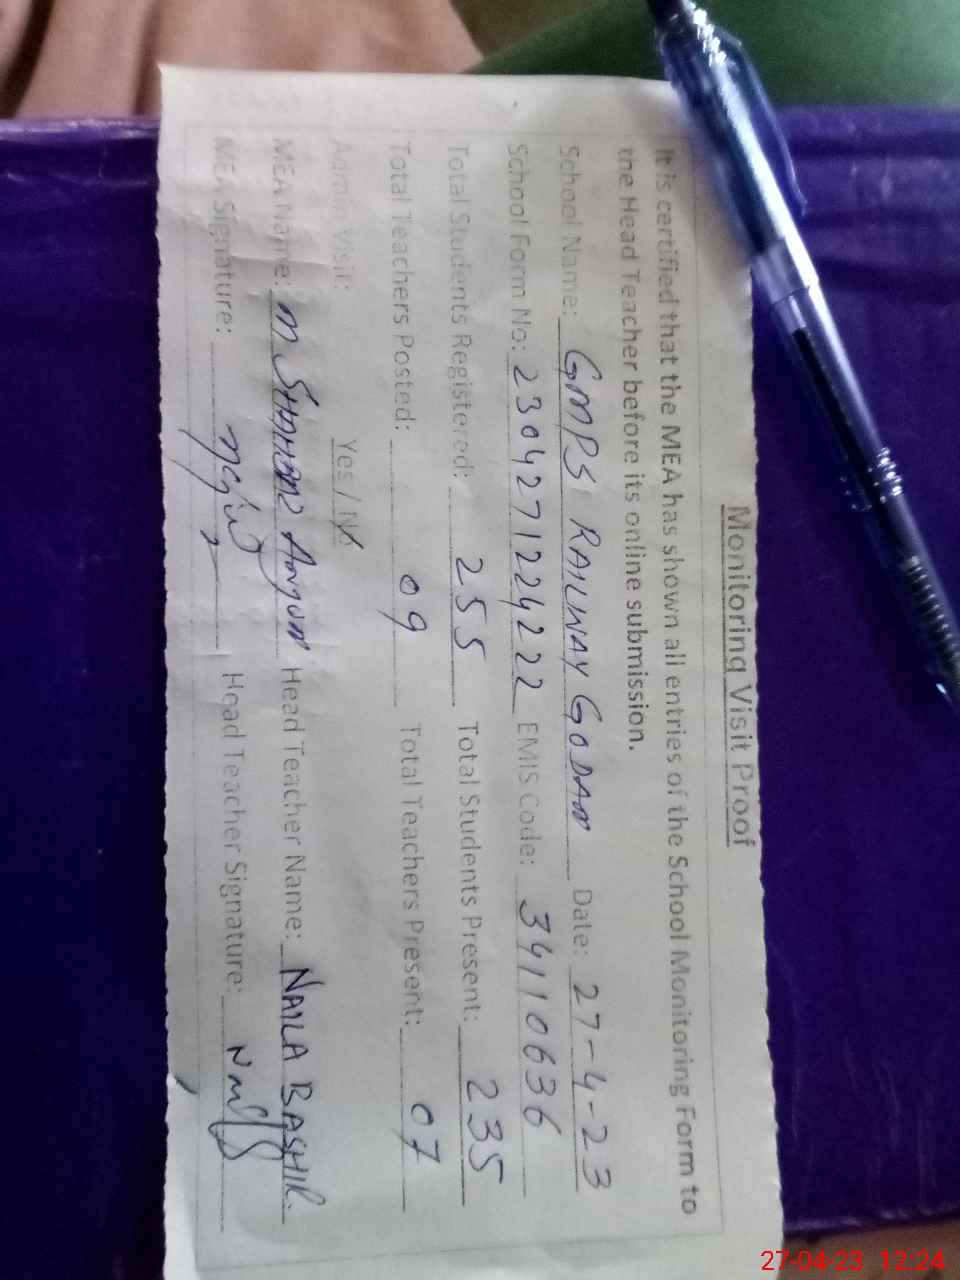 Monitoring Visit Proof
It is certified that the MEA has shown all entries of the School Monitoring Form to
the Head Teacher before its online submission.
School Name: GMPS RAILWAY GODAM Date: 27-4-23
School Form No: 2304271224222 EMIS Code: 34110636
Total Students Registered: 255 Total Students Present: 235
Total Teachers Posted: 09 Total Teachers Present: 07
Admin Visit: Yes / No
MEA Name: M SHAHBAZ Head Teacher Name: NAILA BASHIR
MEA Signature: Head Teacher Signature:
27-04-23 12:24